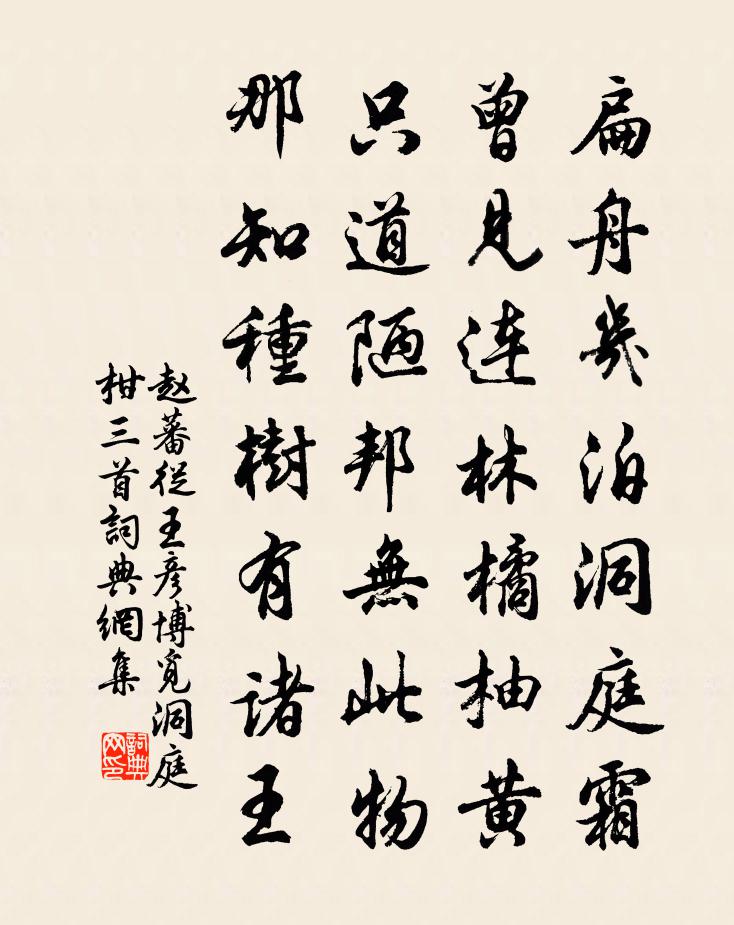 扁舟幾泊洞庭霜
曾見連林橘柚黃
只道陋邦無此物
那知種樹有諸王
赵蕃從王彦博覓洞庭
柑三首詞典網集
詞典网印